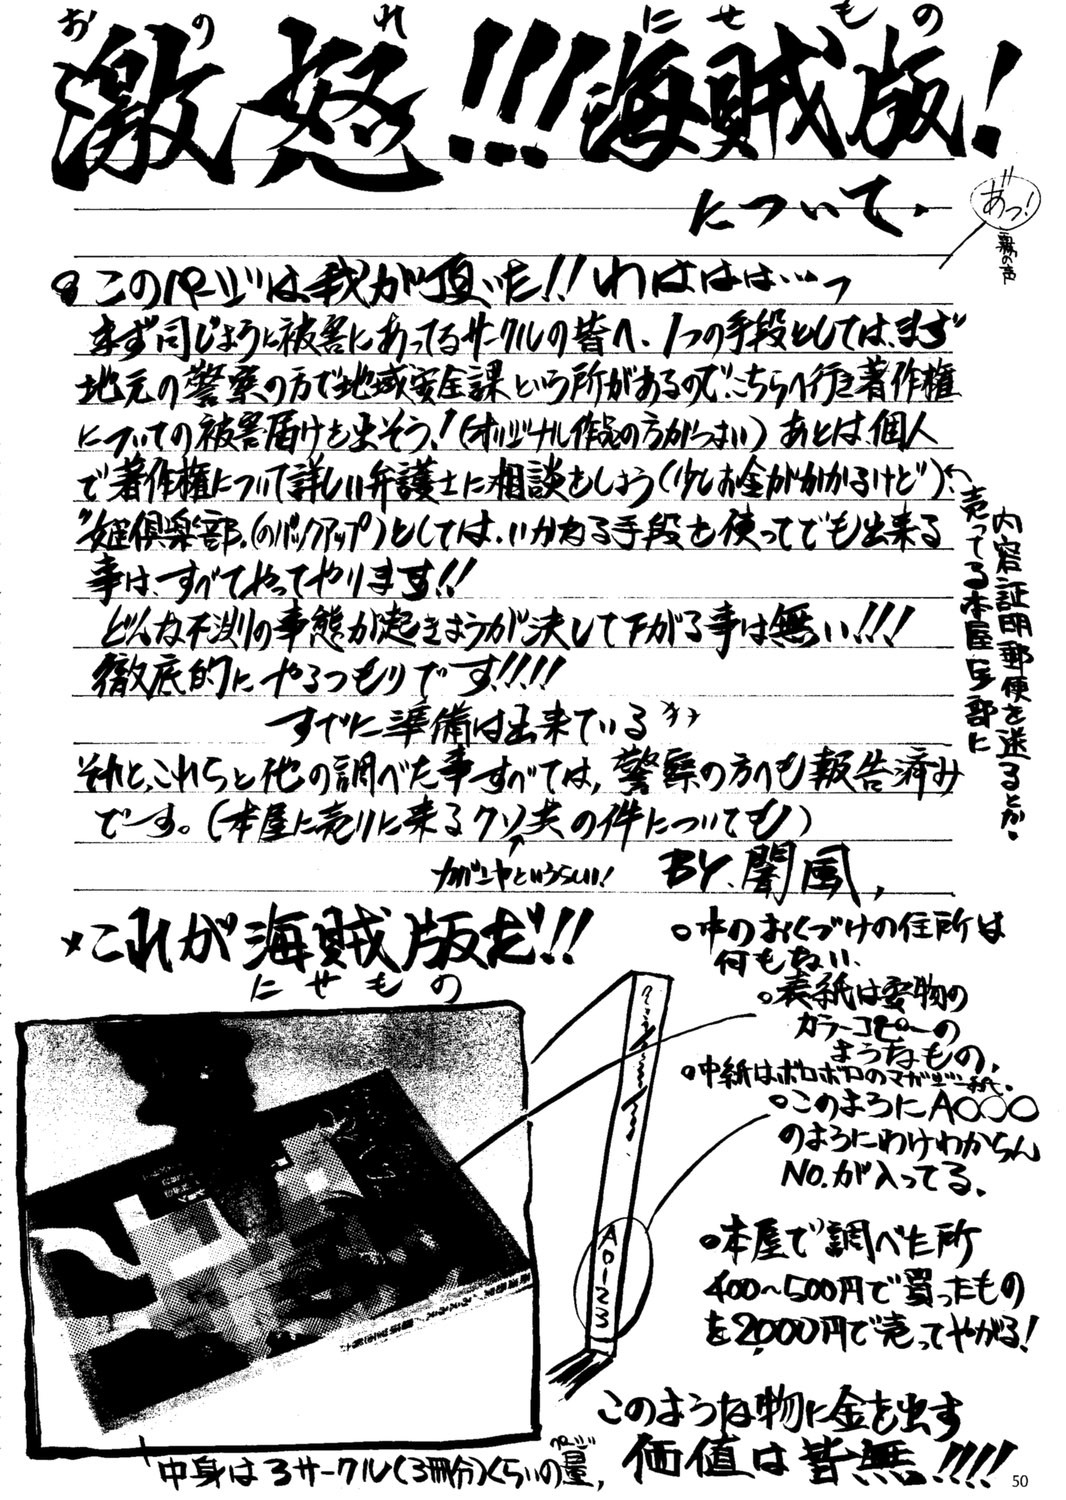 おのれ にせもの
激怒!!!海賊版!
について.
あっ!
霧の声
このページは、我が頂いた!!わははは…っ
まず同じように被害にあってるサークルの皆へ、1つの手段としては、まず
地元の警察の方で地域安全課という所があるので、こちらへ行き著作権
についての被害届けを出そう!(オリジナル作品の方がつよい)あとは、個人
で著作権について詳しい弁護士に相談をしよう(少しお金がかかるけど)
内容証明郵便を送るとか.
売ってる本屋全部に
姫倶楽部.(のバックアップ)としては、いかなる手段を使ってでも出来る
事は、すべてやってやります!!
どんな不測の事態が起きようが決して下がる事は無い!!!
徹底的にやるつもりです!!!!
すでに準備は出来ている
それと、これらと他の調べた事すべては,警察の方へも報告済み
です。(本屋に売りに来るクソ共の件についても)
ガンヤというらしい!
BY.闇風,
これが海賊版だ!!
にせもの
中のおくづけの住所は
何もない.
表紙は安物の
カラーコピーの
ようなもの.
中紙はボロボロのマガジン紙.
このようにA○○○
のようにわけわからん
NO.が入ってる.
A0123
本屋で調べた所
400〜500円で買ったもの
を2,000円で売ってやがる!
このような物に金を出す
価値は皆無!!!!
中身は3サークル(3冊分)くらいの量,
ページ
50